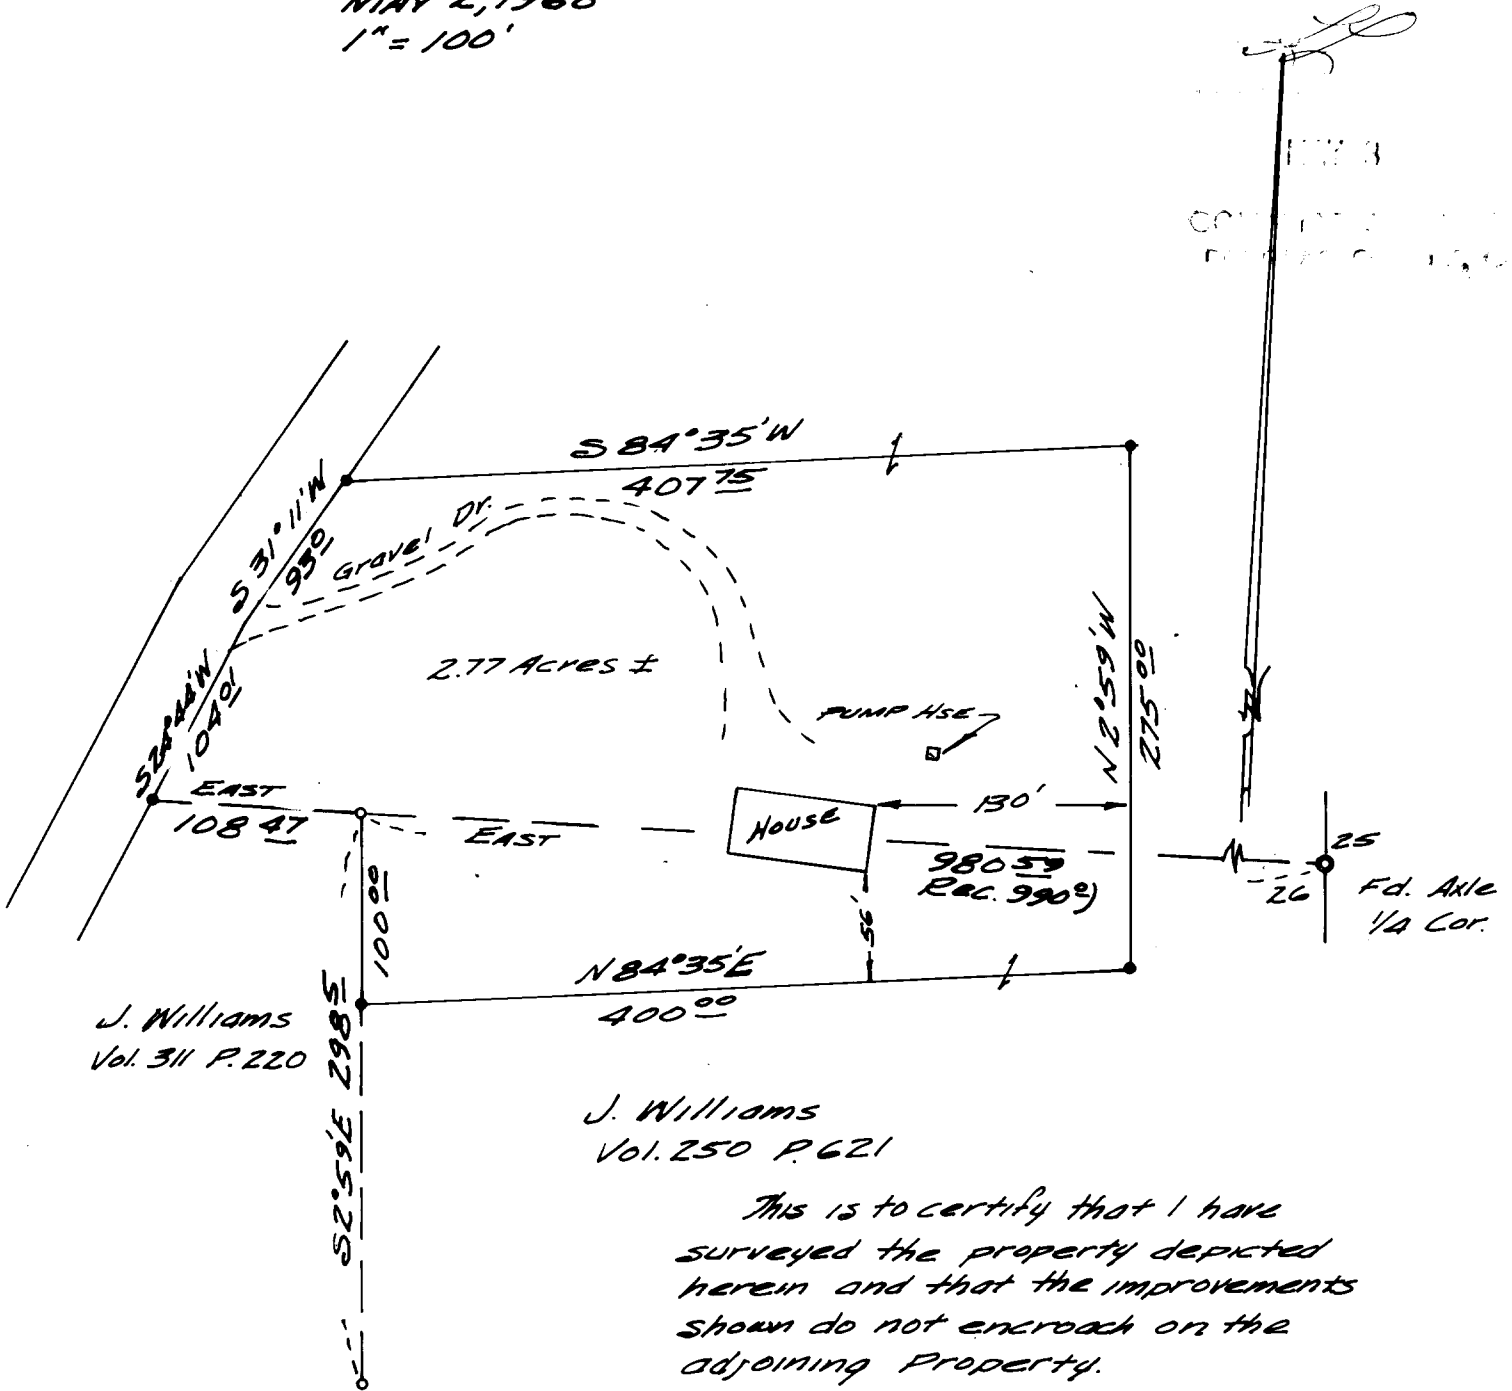 1" = 100'
S 84°35'W
407 75
S 31°11'W
93 0
Gravel Dr.
2.77 Acres ±
S 28°44'W
104 01
PUMP HSE
N 2°59'W
275 00
EAST
108 47
EAST
House
130'
980 59
Rec. 990 0)
25
26
Fd. Axle
1/4 Cor.
100 00
56'
N 84°35'E
400 00
J. Williams
Vol. 311 P. 220
S2°59'E 298 5
J. Williams
Vol. 250 P. 621
This is to certify that I have
surveyed the property depicted
herein and that the improvements
shown do not encroach on the
adjoining Property.